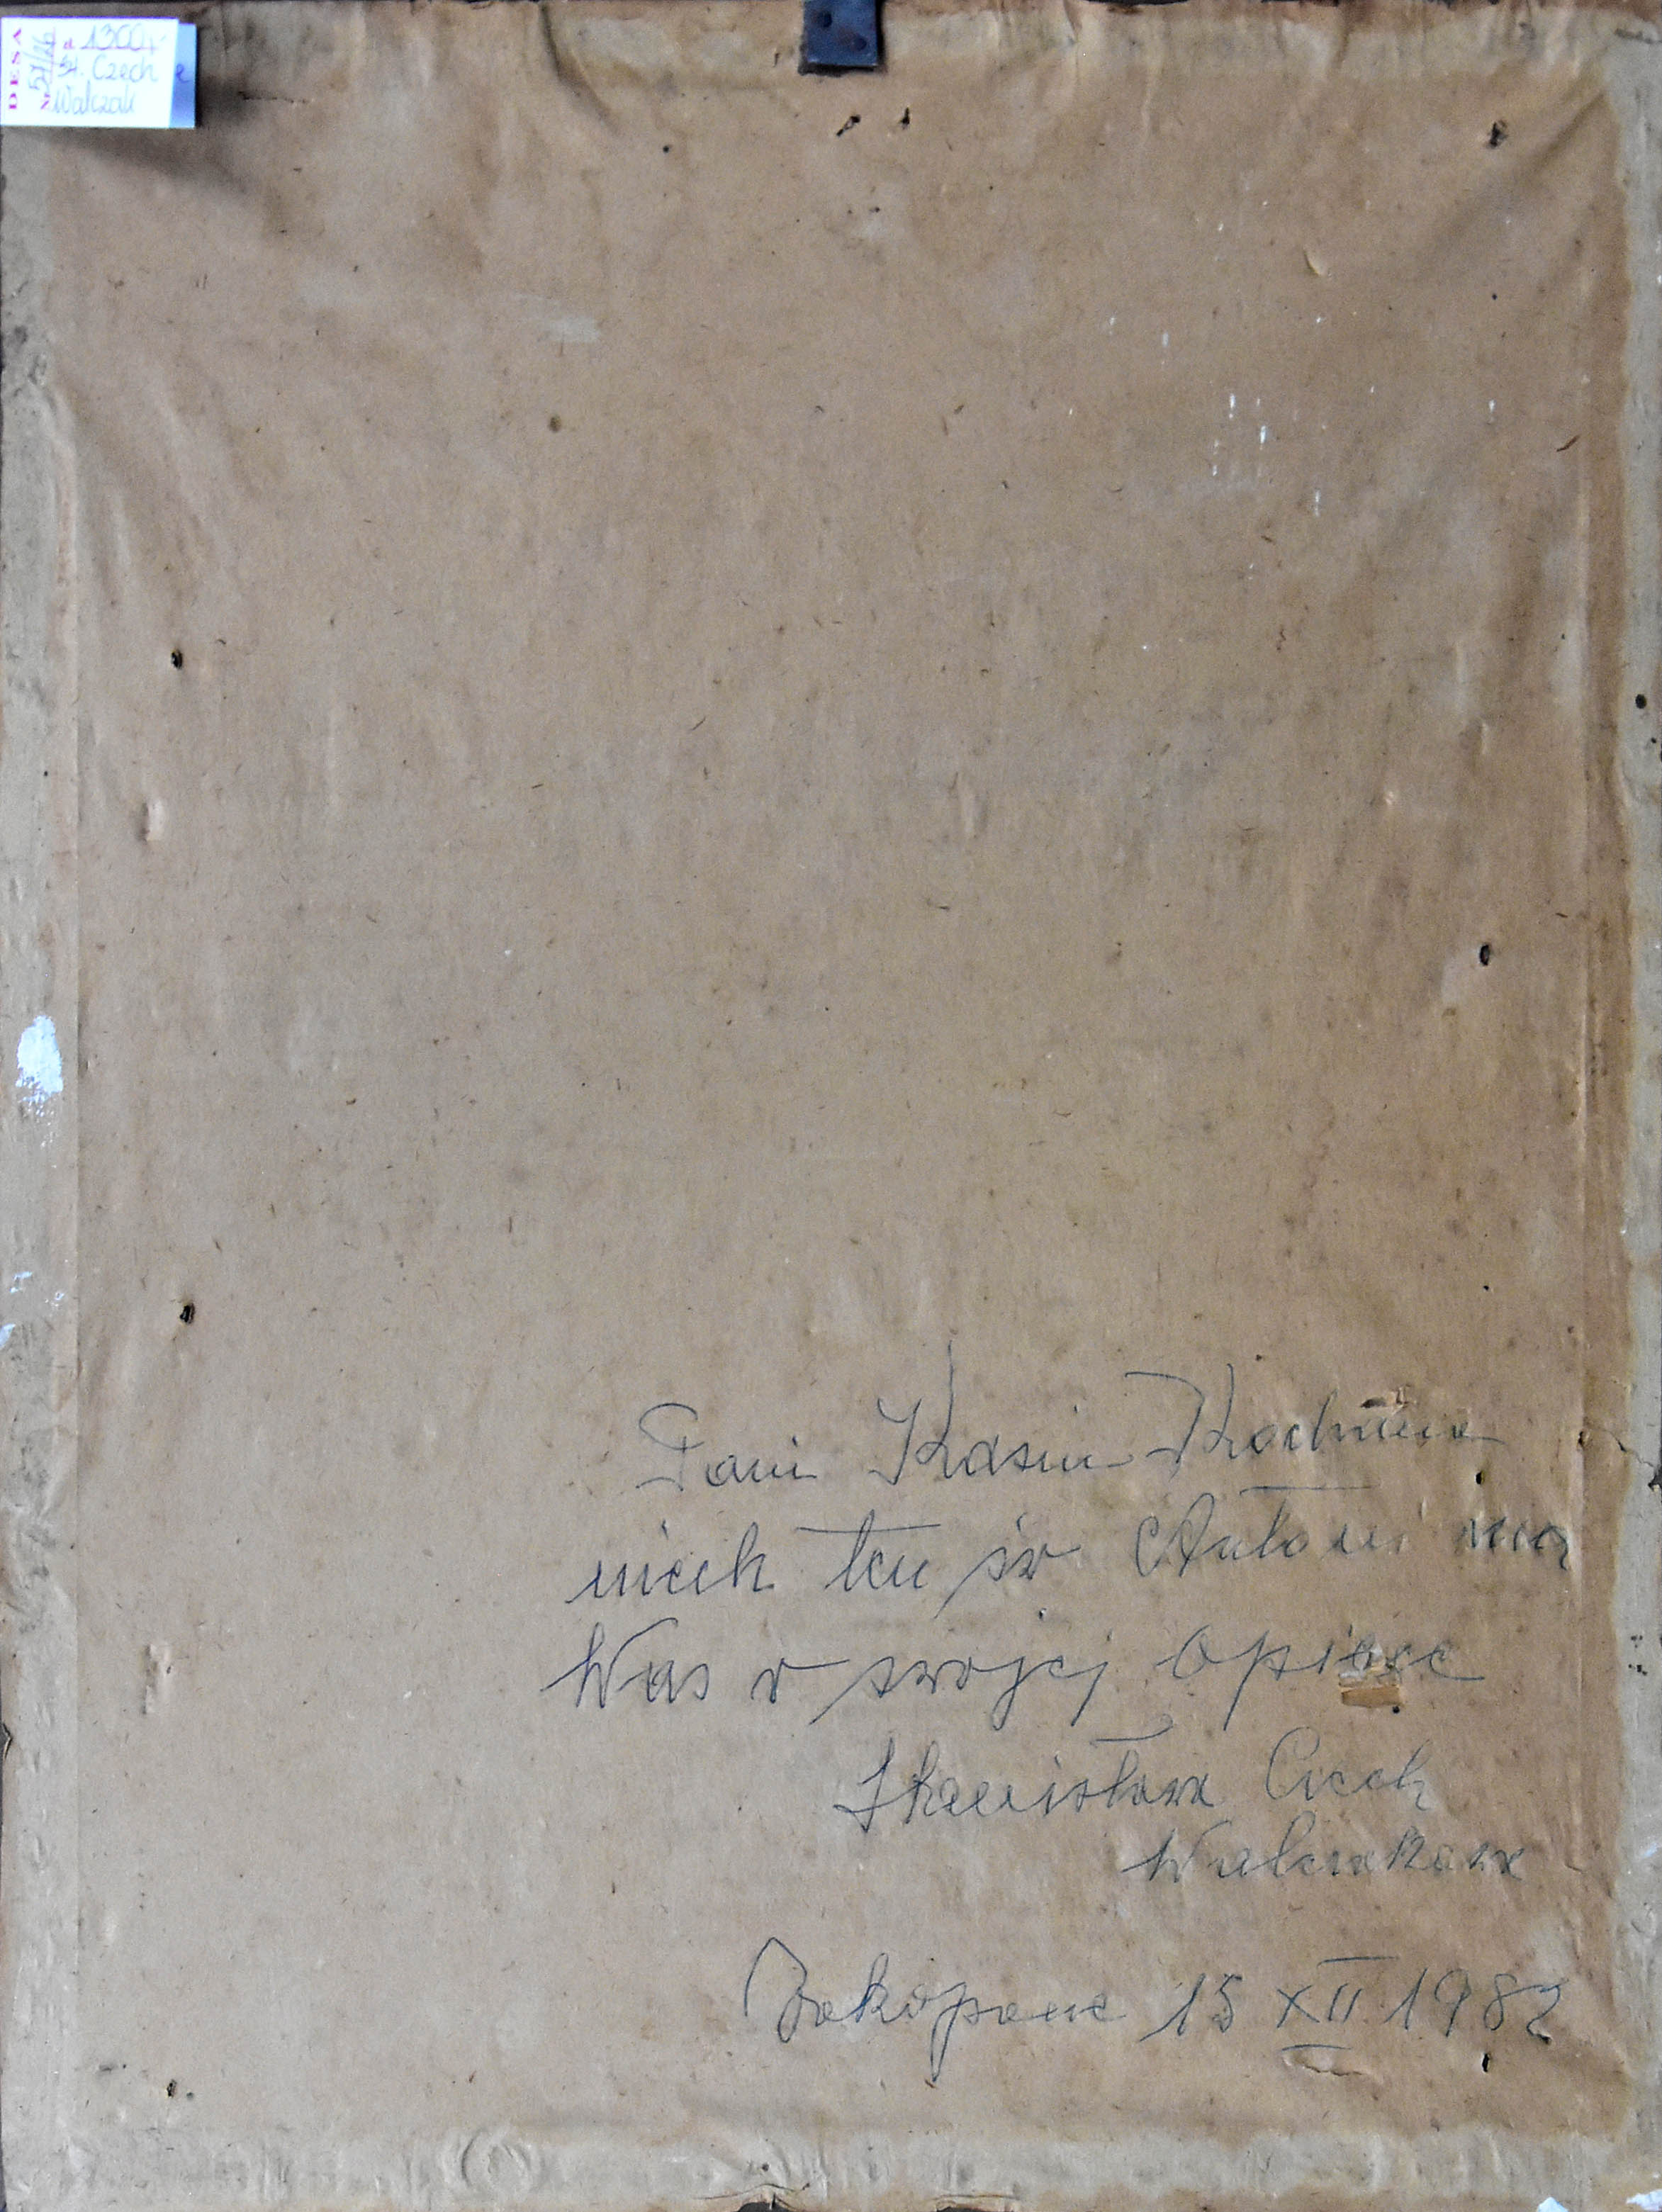 DESA
1300
St. Czech
Walczak
Pani Kasiu Kochana
niech ten św Antoni ma
Was w swojej opiece
Stanisława Czech
Walczakowa
Zakopane 15 XII 1982